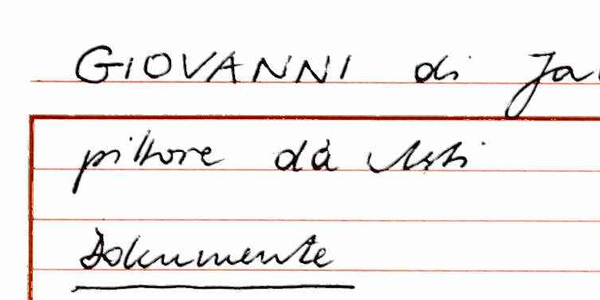 GIOVANNI di Ja
pittore da Asti
Dokumente